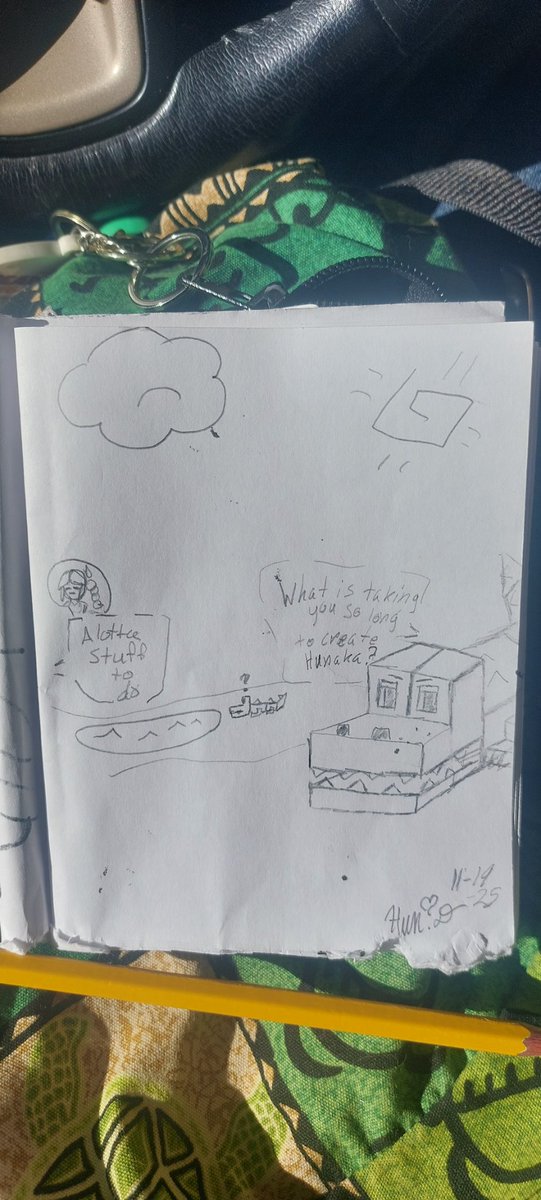 What is taking
you so long
to create
Hunaka?
A lotta
Stuff
to
do
?
11-19
-25